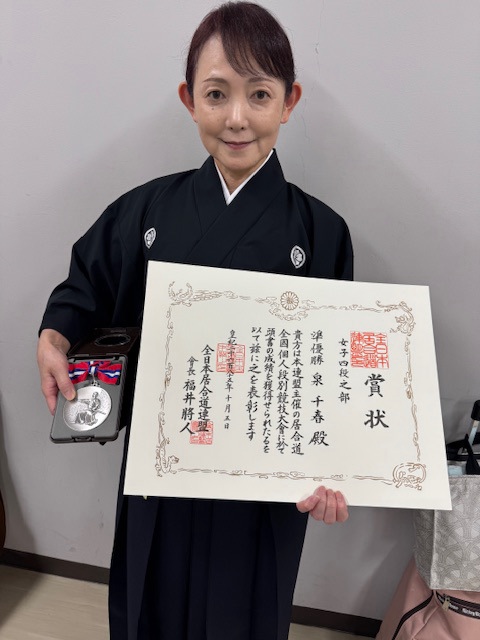 賞状
女子四段之部
準優勝 泉 千春 殿
貴方は本連盟主催の居合道
全国個人段別競技大会に於て
頭書の成績を獲得せられたるを
以て茲に之を表彰します
年十月五日
全日本居合道連盟
会長 福井將人